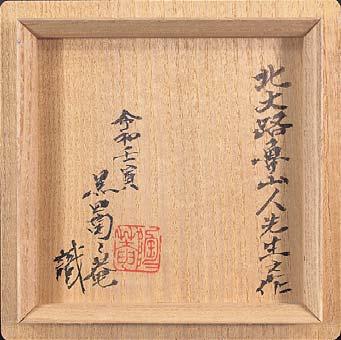 北大路魯山人先生之作
令和壬寅
黒 々菴
識